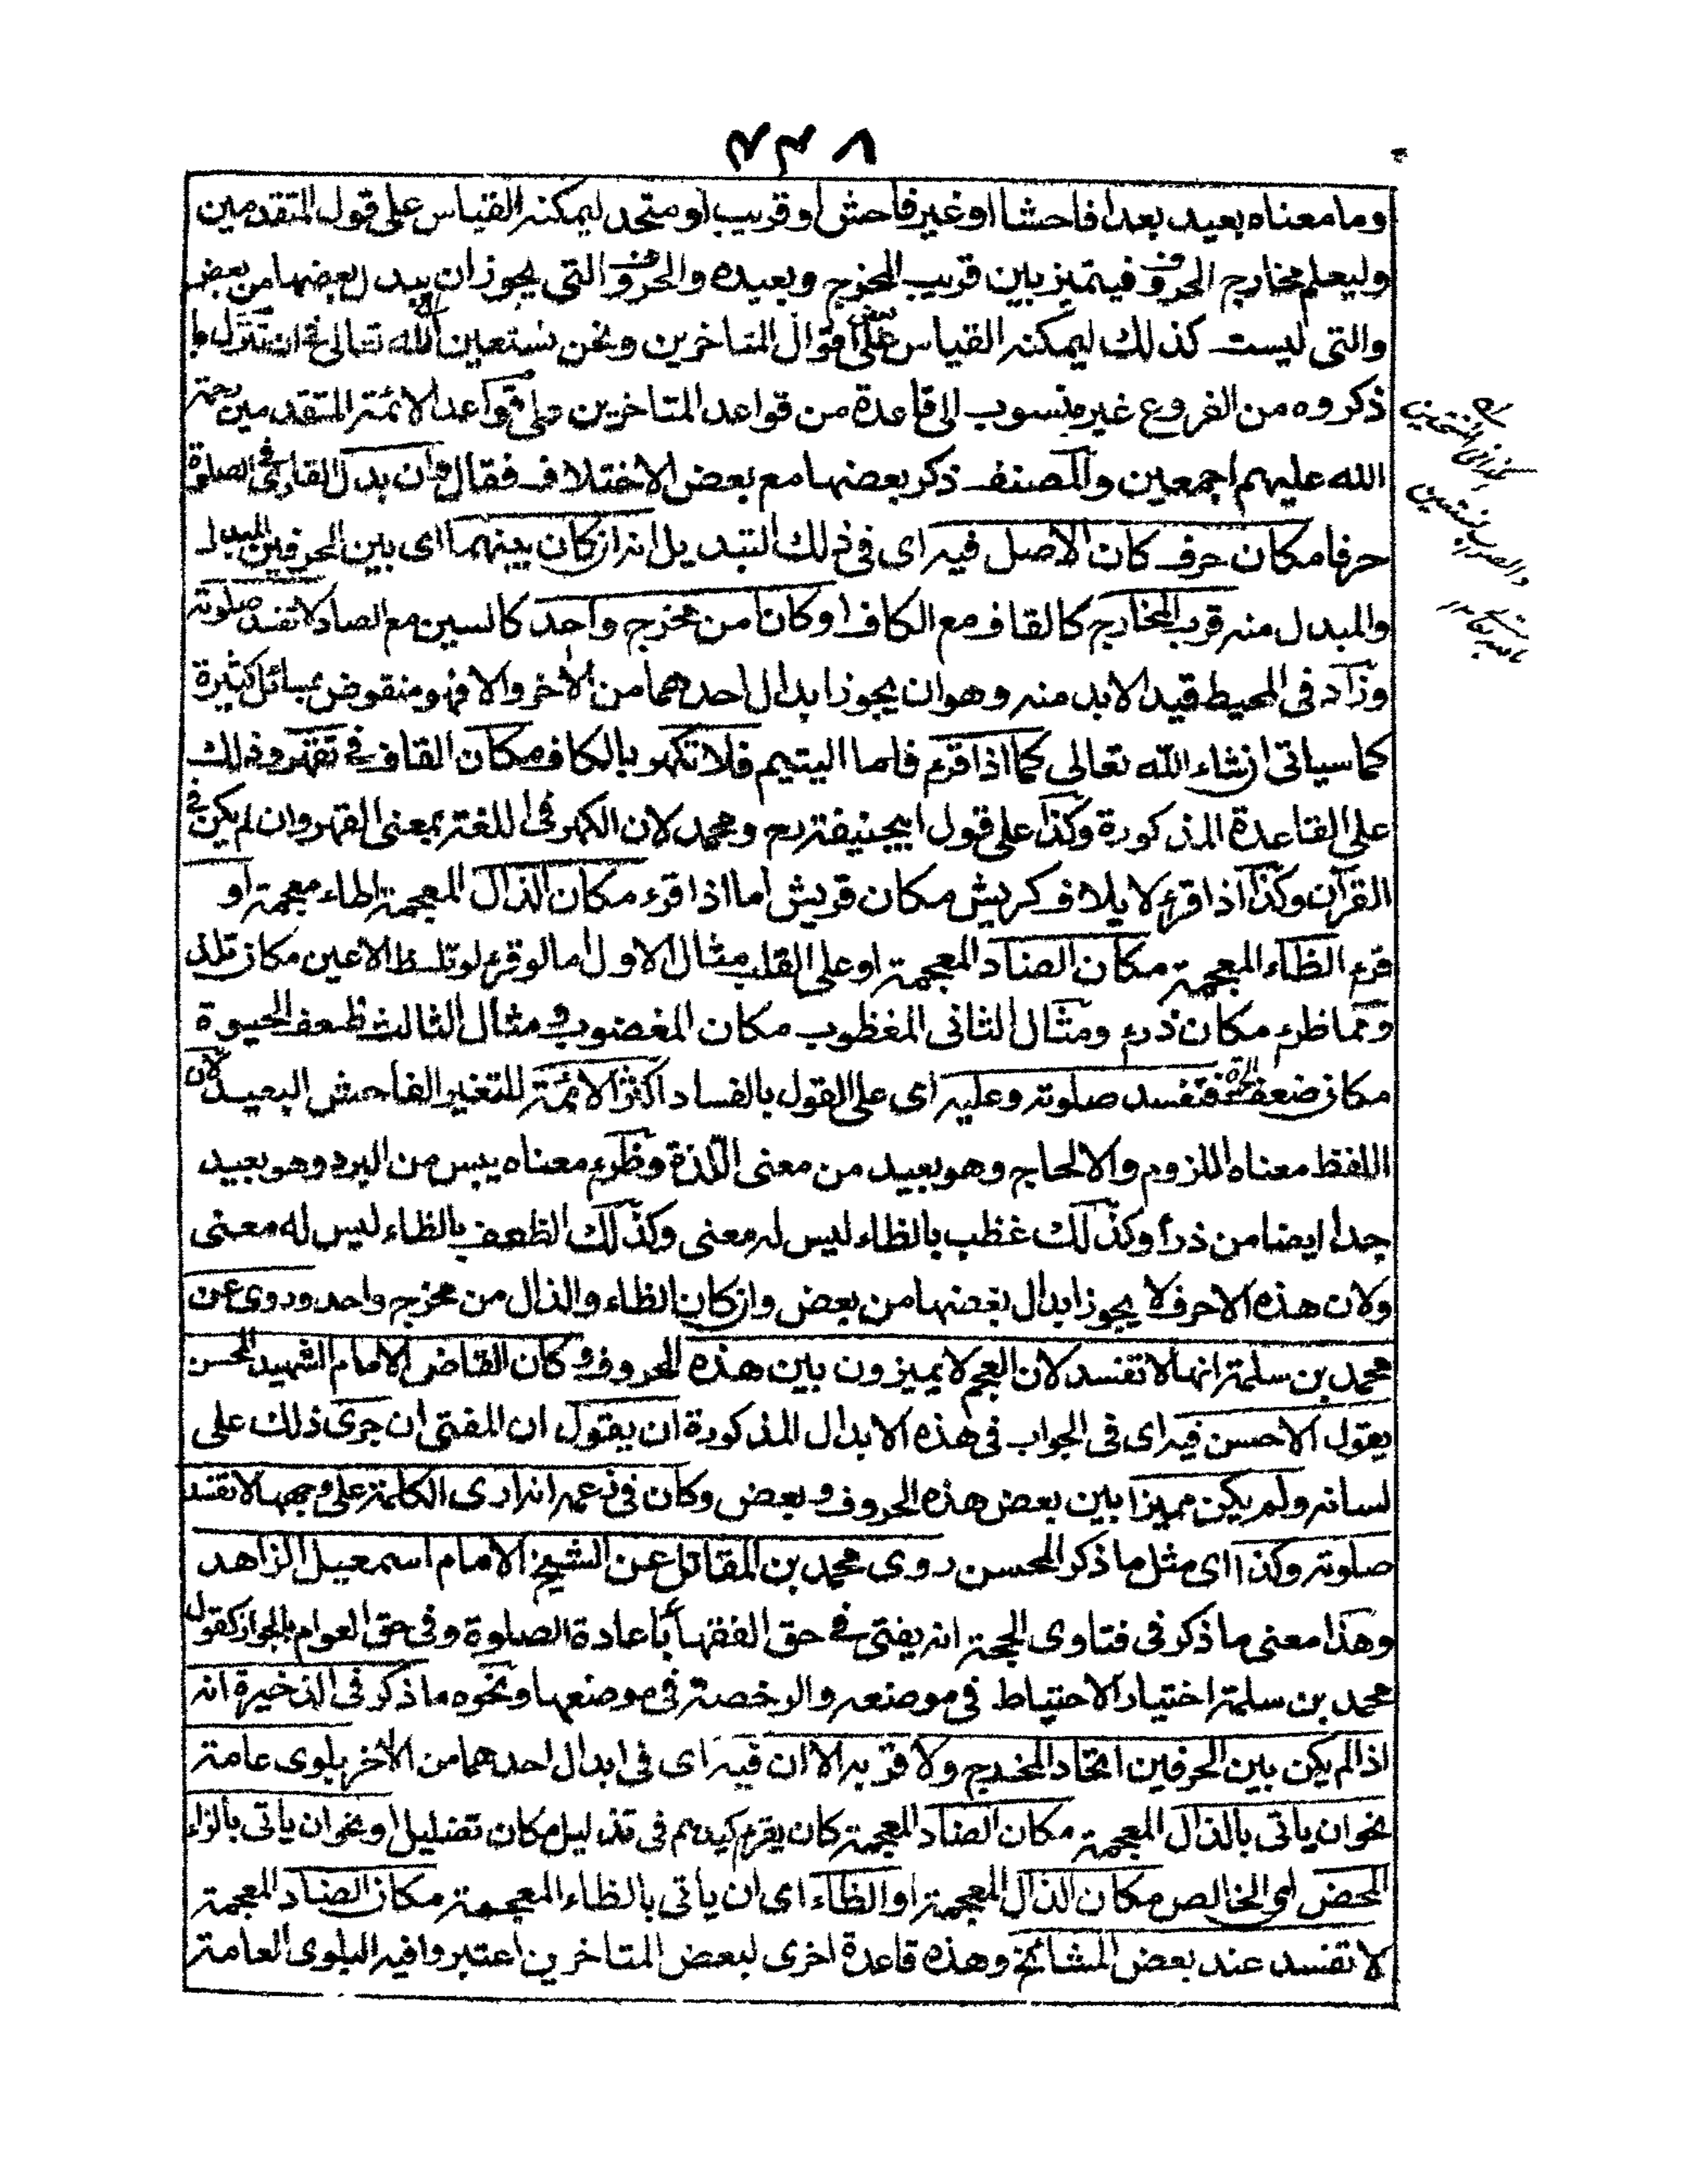 ۴۴۷
وما معناه بعيد بعدا فاحشا او غير فاحش او قريب او متحد ليمكنه القياس على قول المتقدمين
وليعلم مخارج الحروف فيتميز بين قريب المخرج وبعيده والحروف التى يجوز ان يبدل بعضها من بعض
والتى ليست كذلك ليمكنه القياس على اقوال المتاخرين ونحن نستعين الله تعالى فى ان ننزل ما
ذكروه من الفروع غير منسوب الى قاعدة من قواعد المتاخرين على قواعد الائمة المتقدمين رحمة
الله عليهم اجمعين والمصنف ذكر بعضها مع بعض الاختلاف فقال وان بدل القارى فى الصلوة
حرفا مكان حرف كان الاصل فيه اى فى ذلك التبديل انه ان كان بينهما اى بين الحرفين المبدل
والمبدل منه قرب المخارج كالقاف مع الكاف او كانا من مخرج واحد كالسين مع الصاد لا تفسد صلوته
وزاد فى المحيط قيدا لابد منه وهو ان يجوز ابدال احدهما من الآخر والا فهو منقوض بمسائل كثيرة
كما سياتى ان شاء الله تعالى كما اذا قرء فاما اليتيم فلا تكهر بالكاف مكان القاف فى تقهر وذلك
على القاعدة المذكورة وكذا على قول ابيحنيفة رح ومحمد لان الكهر فى اللغة بمعنى القهر وان لم يكن فى
القرآن وكذا اذا قرء لايلاف كريش مكان قريش اما اذا قرء مكان الذال المعجمة الظاء معجمة او
قرء الظاء المعجمة مكان الضاد المعجمة او على القلب مثال الاول ما لو قرء لو تلظ الاعين مكان تلذ
ومما ظرء مكان ذرء ومثال الثانى المغظوب مكان المغضوب ومثال الثالث ظعف الحيوة
مكان ضعف الحيوة فتفسد صلوته وعليه اى على القول بالفساد اكثر الائمة للتغير الفاحش البعيد لان
اللفظ معناه اللزوم والالحاح وهو بعيد من معنى اللذة وظرء معناه يبس من البرد وهو بعيد
جدا ايضا من ذرأ وكذلك غظب بالظاء ليس له معنى وكذلك الظعف بالظاء ليس له معنى
ولان هذه الاحرف لا يجوز ابدال بعضها من بعض وان كان الظاء والذال من مخرج واحد وروى عن
محمد بن سلمة انها لا تفسد لان العجم لا يميزون بين هذه الحروف وكان القاضى الامام الشهيد المحسن
يقول الاحسن فيه اى فى الجواب فى هذه الابدال المذكورة ان يقول ان المفتى ان جرى ذلك على
لسانه ولم يكن مميزا بين بعض هذه الحروف وبعض وكان فى زعمه انه ادى الكلمة على وجهها لا تفسد
صلوته وكذا اى مثل ما ذكر المحسن روى محمد بن المقاتل عن الشيخ الامام اسمعيل الزاهد
وهذا معنى ما ذكر فى فتاوى الحجة انه يفتى فى حق الفقهأ باعادة الصلوة وفى حق العوام بالجواز كقول
محمد بن سلمة اختيار الاحتياط فى موضعه والرخصة فى موضعها ونحوه ما ذكر فى الذخيرة انه
اذا لم يكن بين الحرفين اتحاد المخرج ولا قربه الا ان فيه اى فى ابدال احدهما من الآخر بلوى عامة
نحو ان ياتى بالذال المعجمة مكان الضاد المعجمة كان يقرء كيدهم فى تذليل مكان تضليل او نحو ان ياتى بالزاء
المحض اى الخالص مكان الذال المعجمة او الظاء اى ان ياتى بالظاء المعجمة مكان الضاد المعجمة
لا تفسد عند بعض المشائخ وهذه قاعدة اخرى لبعض المتاخرين اعتبروا فيه البلوى العامة